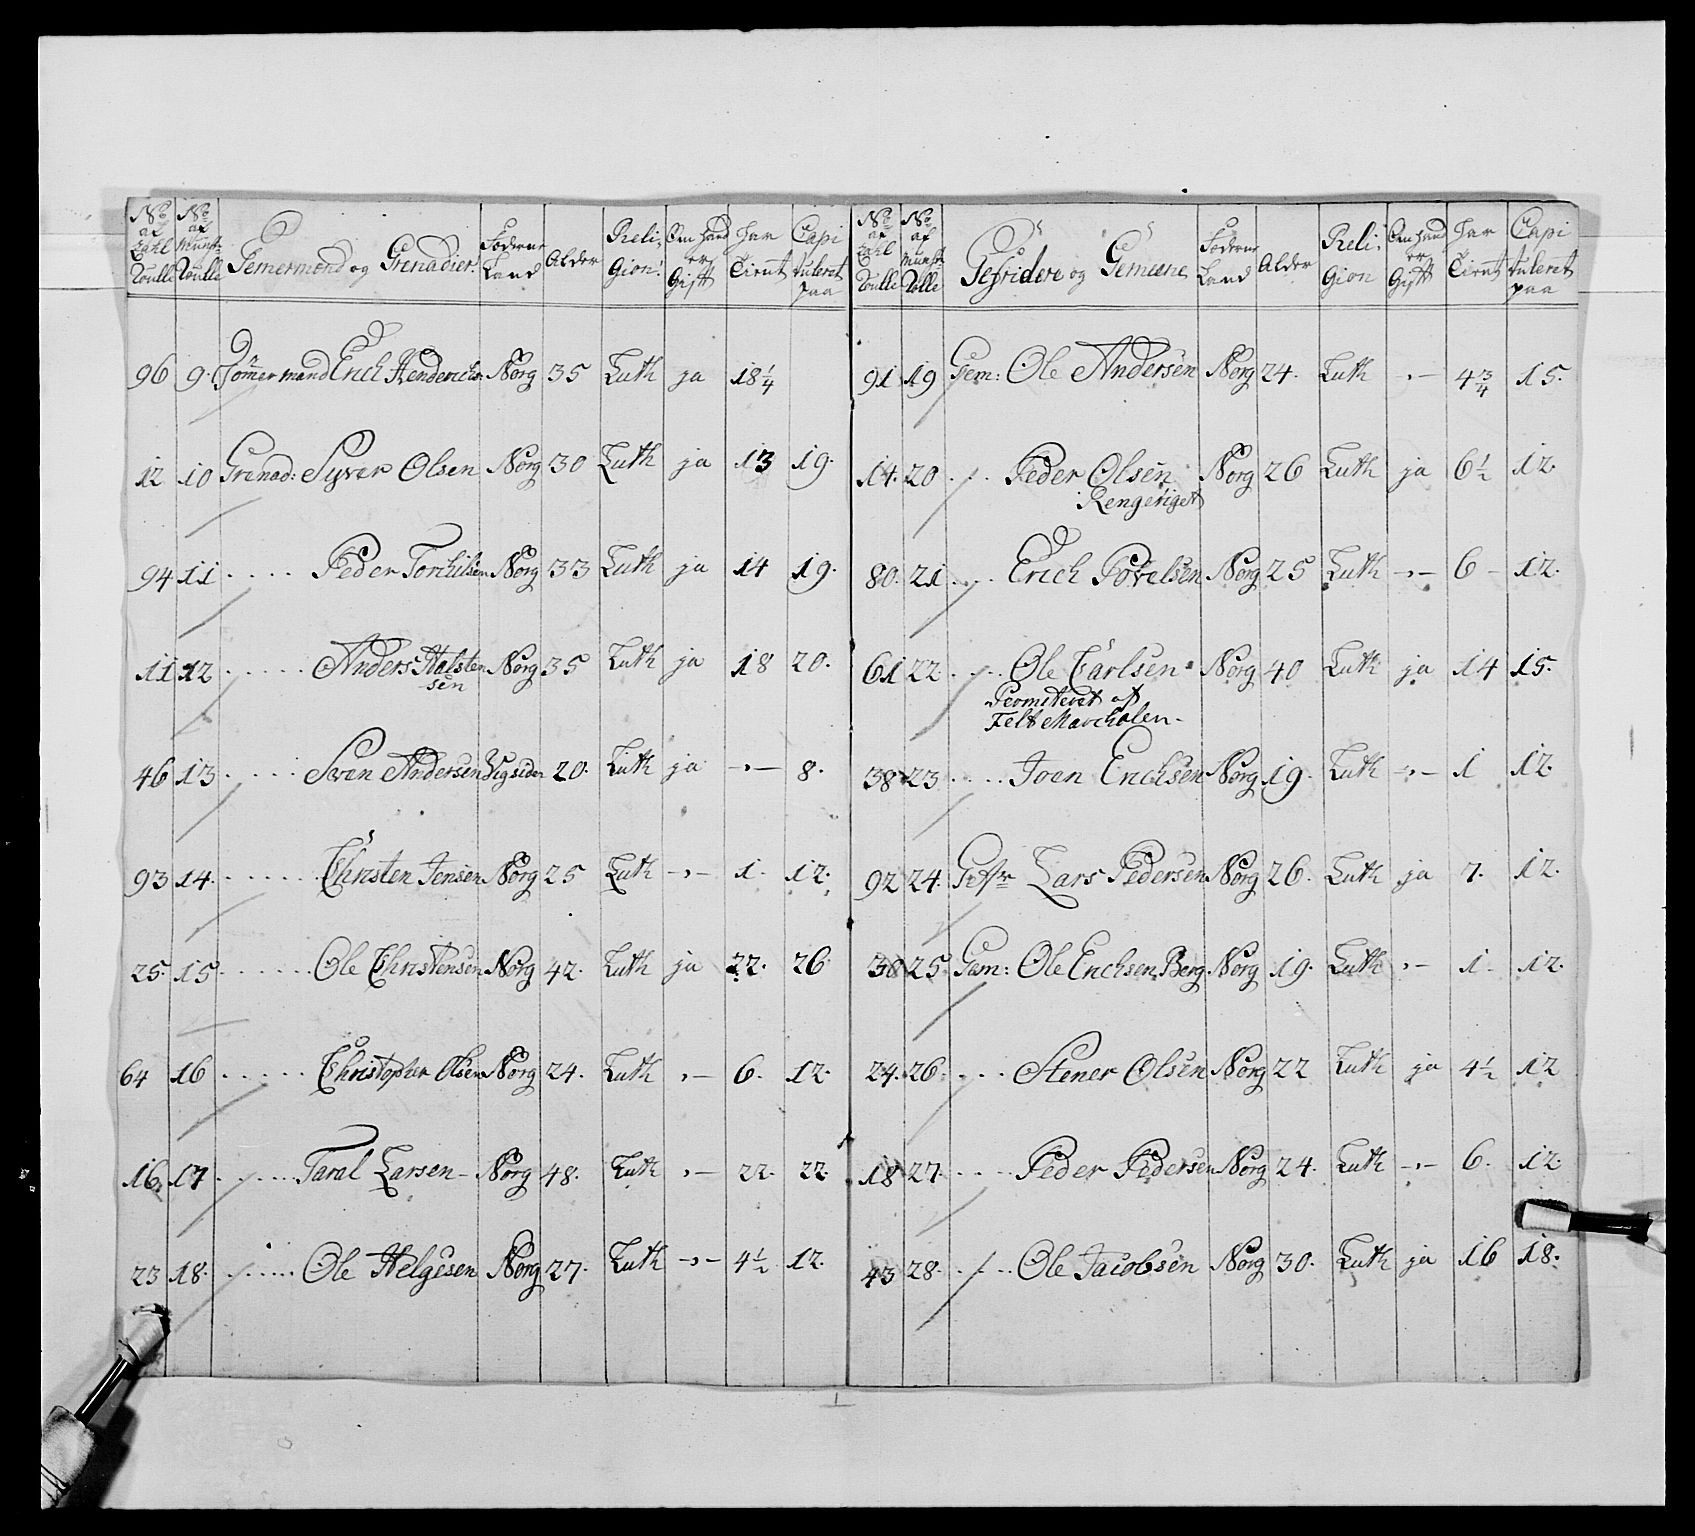 No af Zahl Roulle | No af Munst Roulle | Temermænd og Grenadier: | Föderne Land | Alder | Reli Gion: | Om hand er Gifft | Har Tient | Capi tuleret paa
96 | 9. | Tömmermand Erich Hendrichs: | Norg | 35 | Luth | ja | 18 1/4
12 | 10 | Grenad: Syver Olsen | Norg | 30 | Luth | ja | 13 | 19.
94 | 11 | .... Peder Torchilsen | Norg | 33 | Luth | ja | 14 | 19.
11 | 12 | ..... Anders Halsten
sen | Norg | 35 | Luth | ja | 18 | 20.
46 | 13 | ..... Sven Andersen | 20. | Luth | ja | -,- | 8.
93 | 14. | ...... Christen Jensen | Norg | 25 | Luth | -,- | 1. | 12.
25. | 15 | ...... Ole Christensen | Norg | 42. | Luth | ja | 22. | 26
64 | 16 | ..... Christopher Olsen | Norg | 24. | Luth | ,- | 6. | 12.
16. | 17 | ...... Taral Larsen - | Norg | 48. | Luth | ,- | 22. | 22.
23 | 18. | ...... Ole Helgesen | Norg | 27. | Luth | -,- | 4 1/2 | 12.
No af Zahl Roulle | No af Munst Rolle | Gefridere og Gemeene | Föderne Land | Alder | Reli Gion | Om hand er Gifft | Har Tient | Capi tuleret paa
91 | 19 | Gem: Ole Andersen | Norg | 24. | Luth | ,- | 4 3/4 | 15.
14. | 20 | .... Peder Olsen
Rengeriget | Norg | 26 | Luth | ja | 6 1/2 | 12.
80. | 21 | .... Erich Povelsen | Norg | 25 | Luth | -,- | 6 - | 12.
61 | 22 | .... Ole Carlsen | Norg | 40 | Luth | ja | 14 | 15.
Permiteret af
Felt Marchalen -
38 | 23 | .... Joen Erichsen | Norg | 19. | Luth | -,- | 1 | 12.
92 | 24. | Gefr Lars Pedersen | Norg | 26. | Luth | ja | 7. | 12.
38 | 25 | Gem: Ole Erichsen Berg | Norg | 19. | Luth | ,- | 1 - | 12.
24. | 26. | .... Stener Olsen | Norg | 22 | Luth | ja | 4 1/2 | 12
18 | 27. | .... Peder Pedersen | Norg | 24. | Luth | -,- | 6. | 12
43 | 28. | .... Ole Jacobsen | Norg | 30. | Luth | ja | 16 | 18.